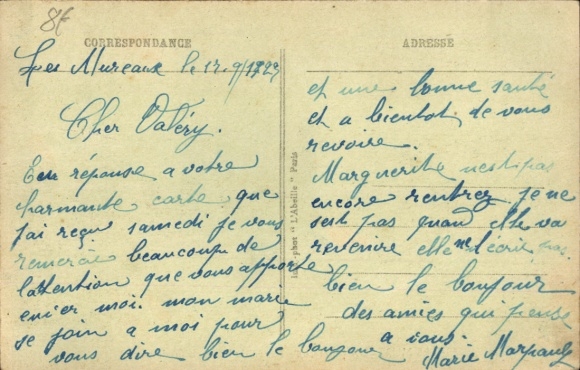 8f
CORRESPONDANCE
ADRESSE
Les Mureaux le 17.9/1929
Cher Valéry.
En réponse a votre
charmante carte que
j'ai reçu samedi je vous
remercie beaucoup de
l'attention que vous apporte
envier moi. mon marie
se join a moi pour
vous dire bien le bonjour
et une bonne santé
et a bientot de vous
revoire.
Marguerite n'est pas
encore rentrez je ne
sest pas quand elle va
revenire elle ne l'écrit pas.
bien le bonjour
des amies qui pense
a vous.
Marie
Imp.-phot "L'Abeille" Paris